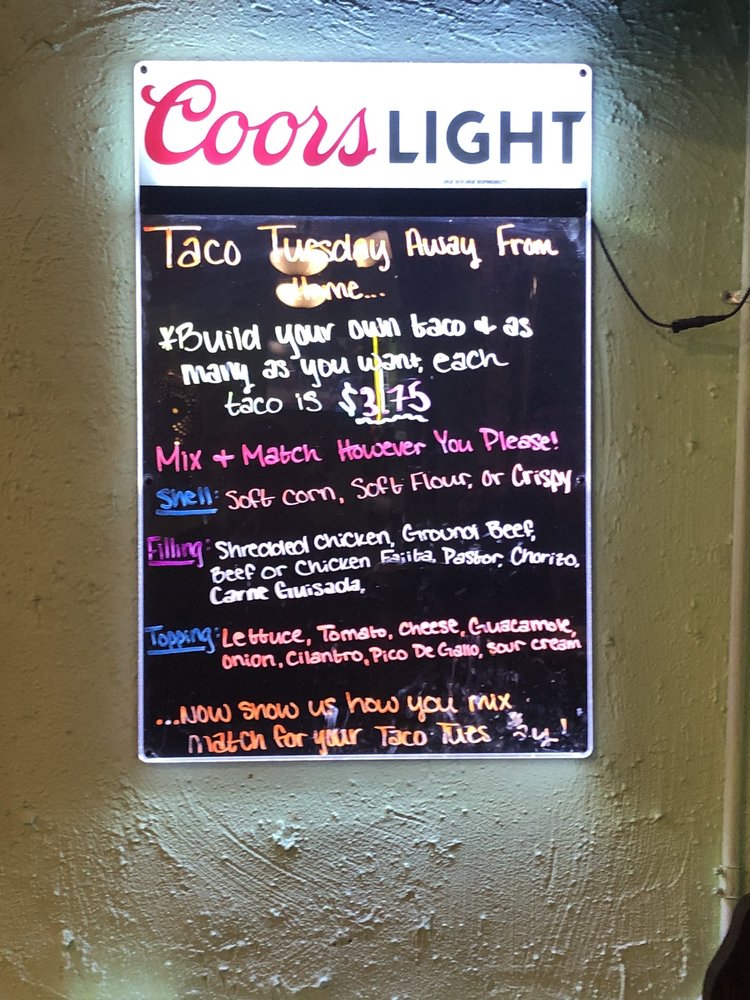 Coors LIGHT
Taco Tuesday Away From
Home...
*Build your own taco & as
many as you want, each
taco is $3.75
Mix + Match However You Please!
Shell: Soft corn, Soft Flour, or Crispy
Filling: Shredded Chicken, Ground Beef,
Beef or Chicken Fajita, Pastor, Chorizo,
Carne Guisada,
Topping: Lettuce, Tomato, cheese, Guacamole,
onion, Cilantro, Pico De Gallo, sour cream
...Now show us how you mix
match for your Taco Tues ay!